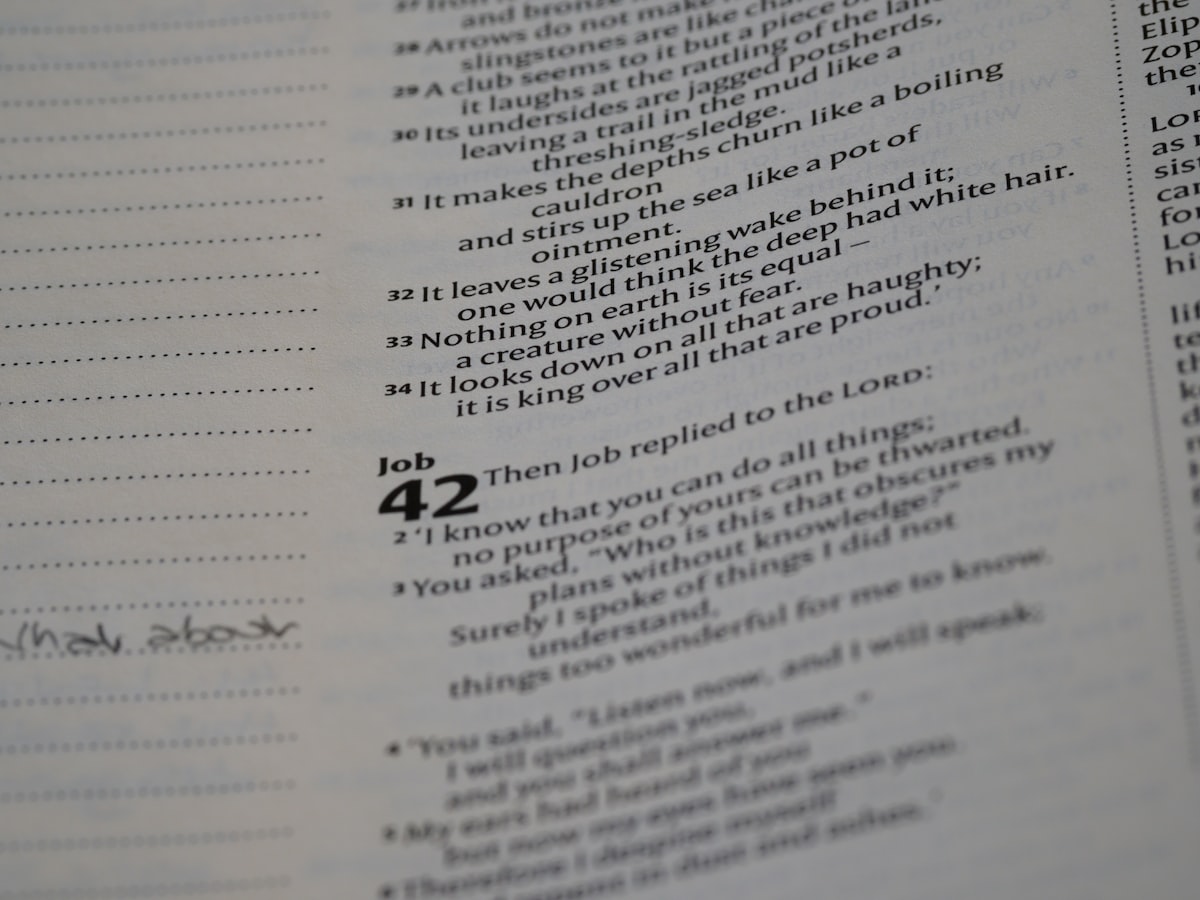 what about
and bronze
28 Arrows do not make
slingstones are like
29 A club seems to it but a piece
it laughs at the rattling of the
30 Its undersides are jagged potsherds,
leaving a trail in the mud like a
threshing-sledge.
31 It makes the depths churn like a boiling
cauldron
and stirs up the sea like a pot of
ointment.
32 It leaves a glistening wake behind it;
one would think the deep had white hair.
33 Nothing on earth is its equal –
a creature without fear.
34 It looks down on all that are haughty;
it is king over all that are proud.’
Job
42 Then Job replied to the LORD:
2 ‘I know that you can do all things;
no purpose of yours can be thwarted.
3 You asked, “Who is this that obscures my
plans without knowledge?”
Surely I spoke of things I did not
understand,
things too wonderful for me to know.
4 ‘You said, “Listen now, and I will speak;
I will question you,
and you shall answer me.”
5 My ears had heard of you
but now my eyes have seen you.
6 Therefore I despise myself
in dust and ashes.’
the
LORD
as